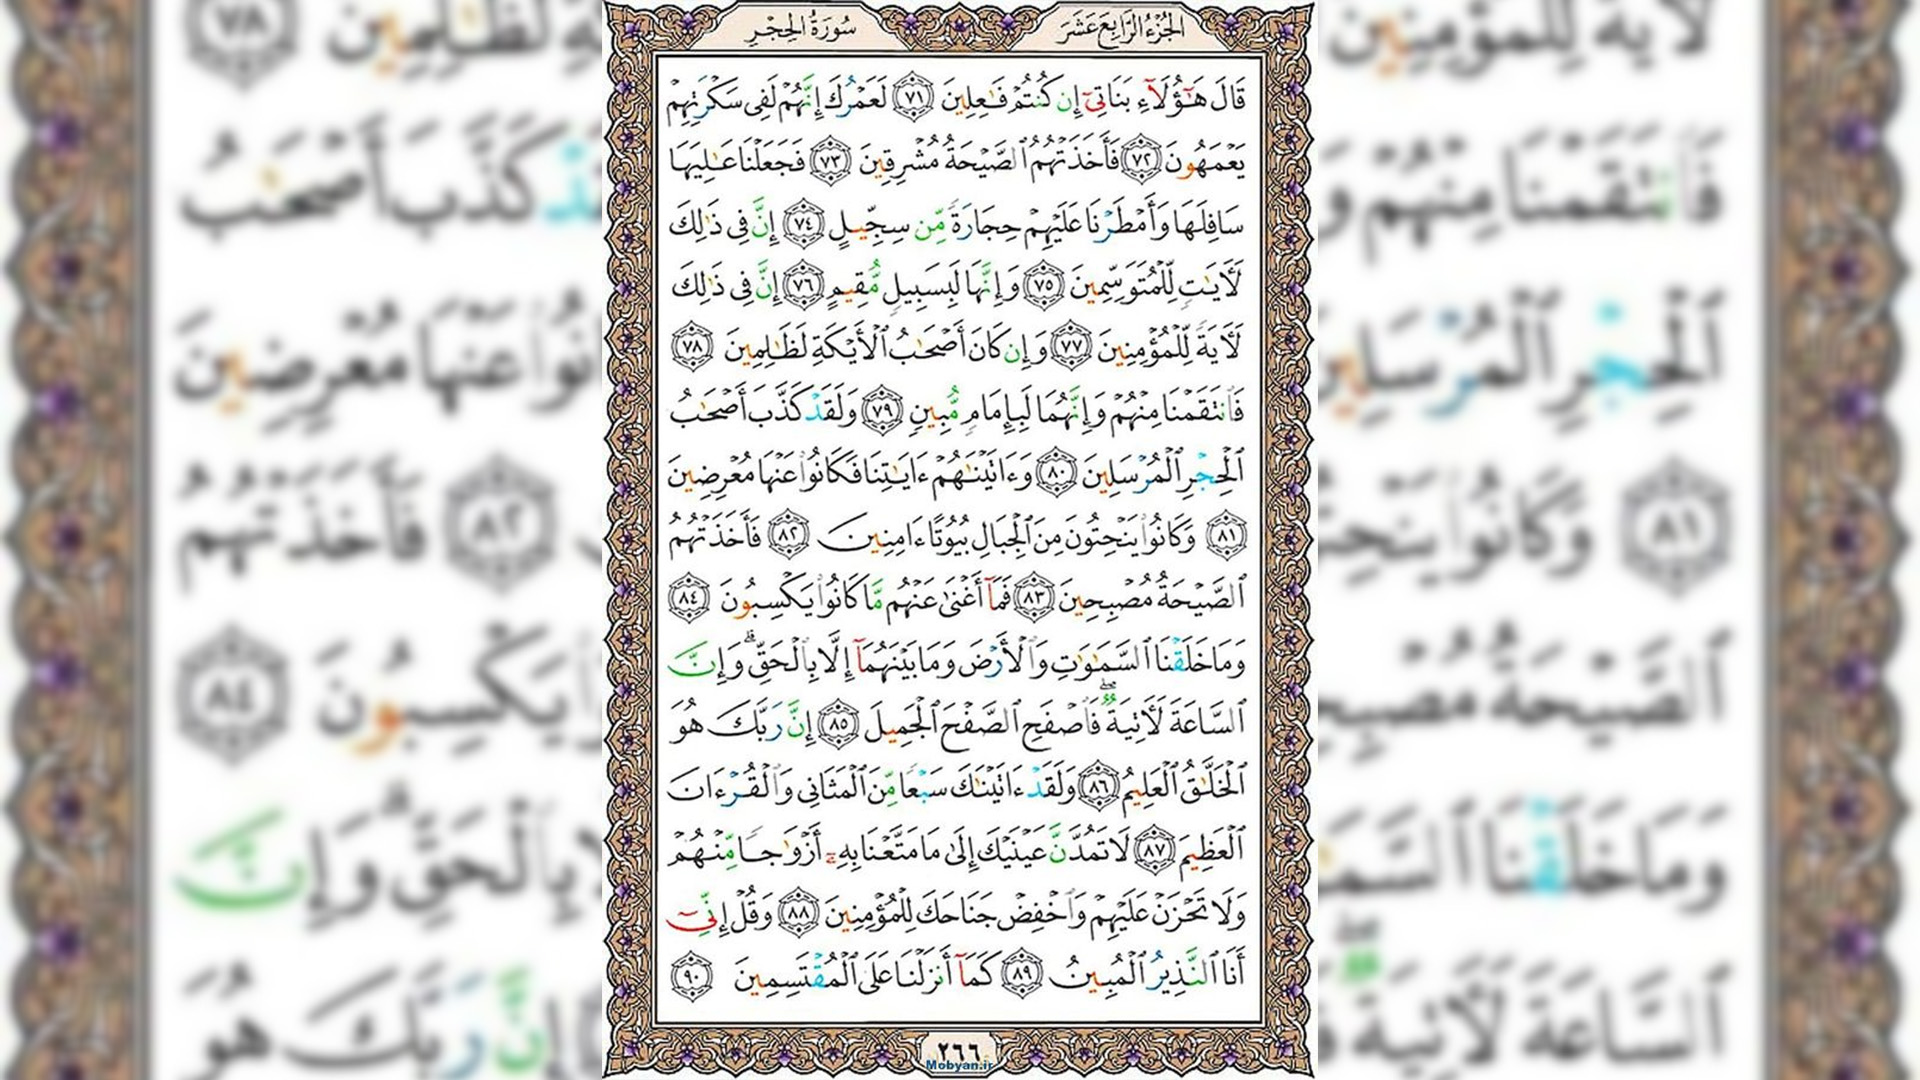 الجُزْءُ الرَّابِعَ عَشَرَ
سُورَةُ الحِجْرِ
قَالَ هَٰٓؤُلَآءِ بَنَاتِىٓ إِن كُنتُمْ فَٰعِلِينَ ﴿٧١﴾ لَعَمْرُكَ إِنَّهُمْ لَفِى سَكْرَتِهِمْ
يَعْمَهُونَ ﴿٧٢﴾ فَأَخَذَتْهُمُ ٱلصَّيْحَةُ مُشْرِقِينَ ﴿٧٣﴾ فَجَعَلْنَا عَٰلِيَهَا
سَافِلَهَا وَأَمْطَرْنَا عَلَيْهِمْ حِجَارَةً مِّن سِجِّيلٍ ﴿٧٤﴾ إِنَّ فِى ذَٰلِكَ
لَـَٔايَٰتٍ لِّلْمُتَوَسِّمِينَ ﴿٧٥﴾ وَإِنَّهَا لَبِسَبِيلٍ مُّقِيمٍ ﴿٧٦﴾ إِنَّ فِى ذَٰلِكَ
لَـَٔايَةً لِّلْمُؤْمِنِينَ ﴿٧٧﴾ وَإِن كَانَ أَصْحَٰبُ ٱلْأَيْكَةِ لَظَٰلِمِينَ ﴿٧٨﴾
فَٱنتَقَمْنَا مِنْهُمْ وَإِنَّهُمَا لَبِإِمَامٍ مُّبِينٍ ﴿٧٩﴾ وَلَقَدْ كَذَّبَ أَصْحَٰبُ
ٱلْحِجْرِ ٱلْمُرْسَلِينَ ﴿٨٠﴾ وَءَاتَيْنَٰهُمْ ءَايَٰتِنَا فَكَانُوا۟ عَنْهَا مُعْرِضِينَ
﴿٨١﴾ وَكَانُوا۟ يَنْحِتُونَ مِنَ ٱلْجِبَالِ بُيُوتًا ءَامِنِينَ ﴿٨٢﴾ فَأَخَذَتْهُمُ
ٱلصَّيْحَةُ مُصْبِحِينَ ﴿٨٣﴾ فَمَآ أَغْنَىٰ عَنْهُم مَّا كَانُوا۟ يَكْسِبُونَ ﴿٨٤﴾
وَمَا خَلَقْنَا ٱلسَّمَٰوَٰتِ وَٱلْأَرْضَ وَمَا بَيْنَهُمَآ إِلَّا بِٱلْحَقِّ ۗ وَإِنَّ
ٱلسَّاعَةَ لَـَٔاتِيَةٌ ۖ فَٱصْفَحِ ٱلصَّفْحَ ٱلْجَمِيلَ ﴿٨٥﴾ إِنَّ رَبَّكَ هُوَ
ٱلْخَلَّٰقُ ٱلْعَلِيمُ ﴿٨٦﴾ وَلَقَدْ ءَاتَيْنَٰكَ سَبْعًا مِّنَ ٱلْمَثَانِى وَٱلْقُرْءَانَ
ٱلْعَظِيمَ ﴿٨٧﴾ لَا تَمُدَّنَّ عَيْنَيْكَ إِلَىٰ مَا مَتَّعْنَا بِهِۦٓ أَزْوَٰجًا مِّنْهُمْ
وَلَا تَحْزَنْ عَلَيْهِمْ وَٱخْفِضْ جَنَاحَكَ لِلْمُؤْمِنِينَ ﴿٨٨﴾ وَقُلْ إِنِّىٓ
أَنَا ٱلنَّذِيرُ ٱلْمُبِينُ ﴿٨٩﴾ كَمَآ أَنزَلْنَا عَلَى ٱلْمُقْتَسِمِينَ ﴿٩٠﴾
٢٦٦
Mobyan.ir